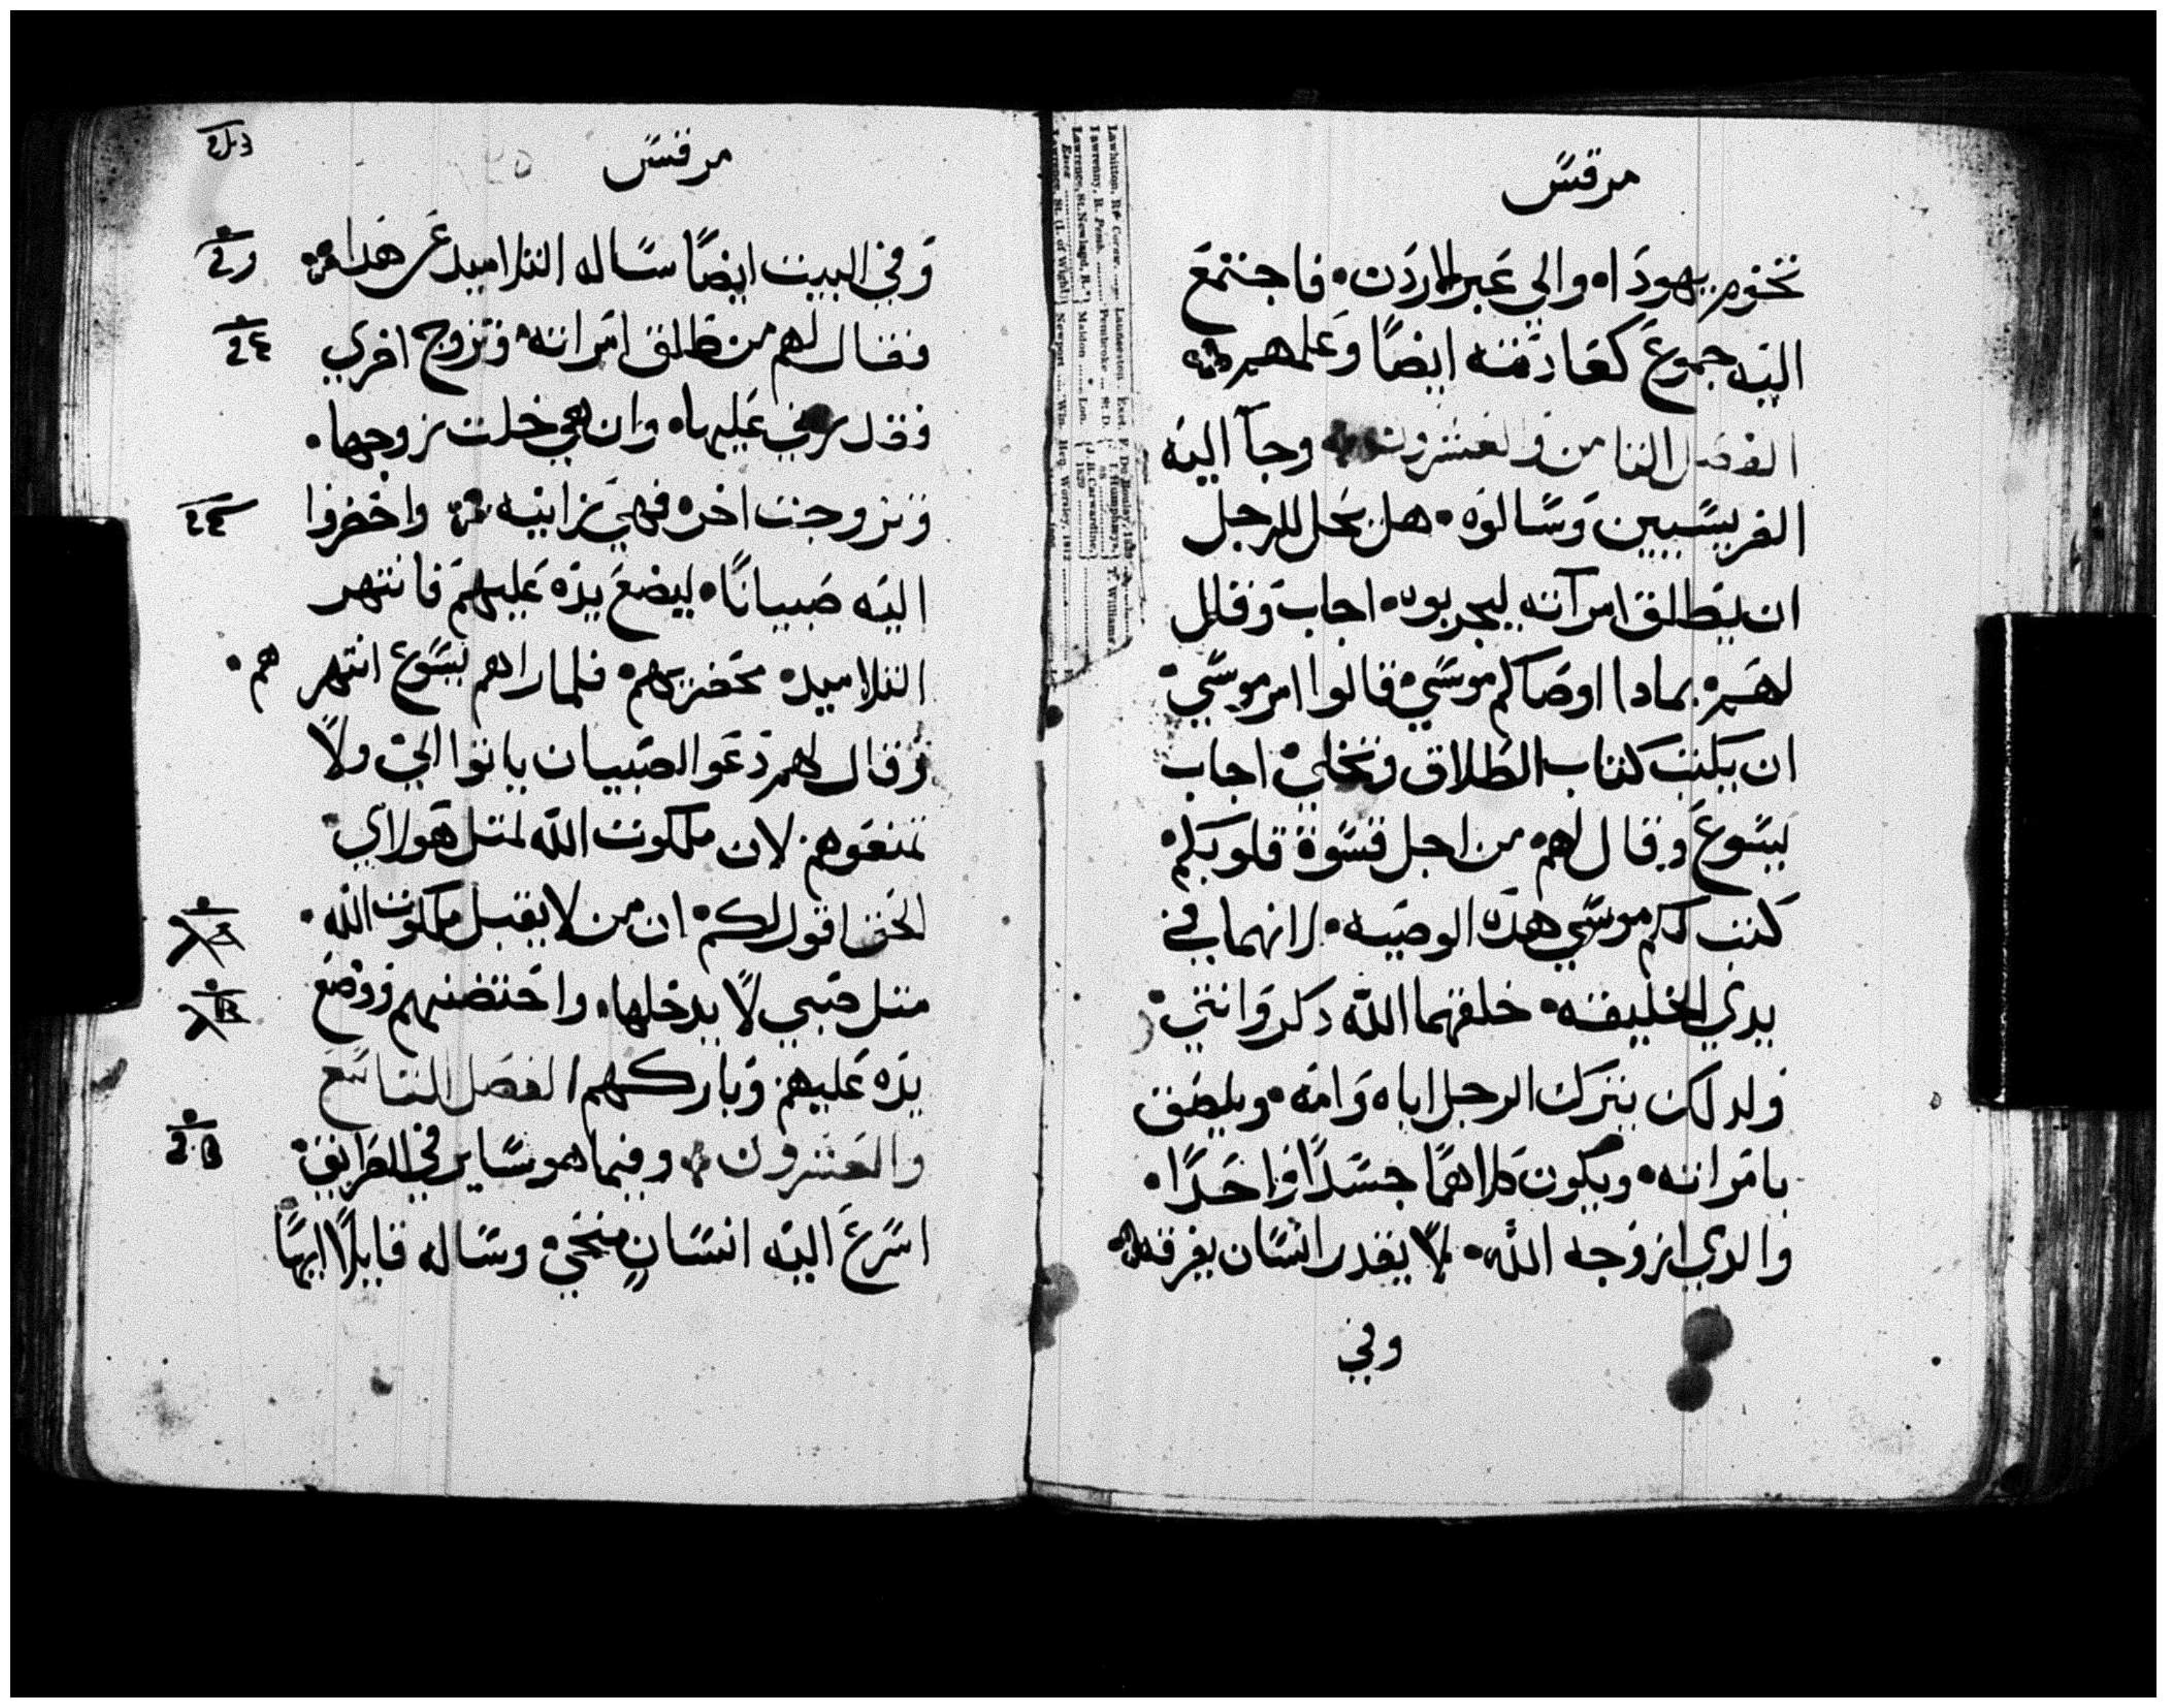 مرقس
تخوم يهودا، والي عبر الاردن. فاجتمع
اليه جموع كعادته ايضا وعلمهم
الفصل الثامن والعشرون وجآ اليه
الفريسيين وسالوه. هل يحل للرجل
ان يطلق امرآته ليجربوه. اجاب وقال
لهم. بمادا اوصاكم موسي. قالوا امر موسي.
ان يكتب كتاب الطلاق وتخلي. اجاب
يسوع وقال لهم. من اجل قسوة قلوبكم.
كتب لكم موسي هده الوصيه. لانهما في
بدي الخليقه. خلقهما الله دكر وانتي.
ولدلك يترك الرجل اباه وامه. ويلصق
بامراته. ويكون كلاهما جسدا واحدا.
والدي ازوجه الله. لا يقدر انسان يفرقه.
وفي
مرقس
وفي البيت ايضا ساله التلاميد عن هدا
فقال لهم من طلق امراته. وتزوج اخري
فقد زني عليها. وان هي خلت زوجها.
وتزوجت اخر. فهي زانيه واحضروا
اليه صبيانا. ليضع يده عليهم فانتهر
التلاميد. محضريهم. فلما راهم يسوع انتهرهم.
وقال لهم دعوا الصبيان ياتوا الي. ولا
تمنعوهم. لان ملكوت الله لمتل هولاي.
الحق اقول لكم. ان من لا يقبل ملكوت الله.
متل صبي لا يدخلها. واحتضنهم ووضع
يده عليهم. وباركهم الفصل التاسع
والعشرون وفيما هو ساير في الطرايق.
اسرع اليه انسان منحي. وساله قايلا ايها